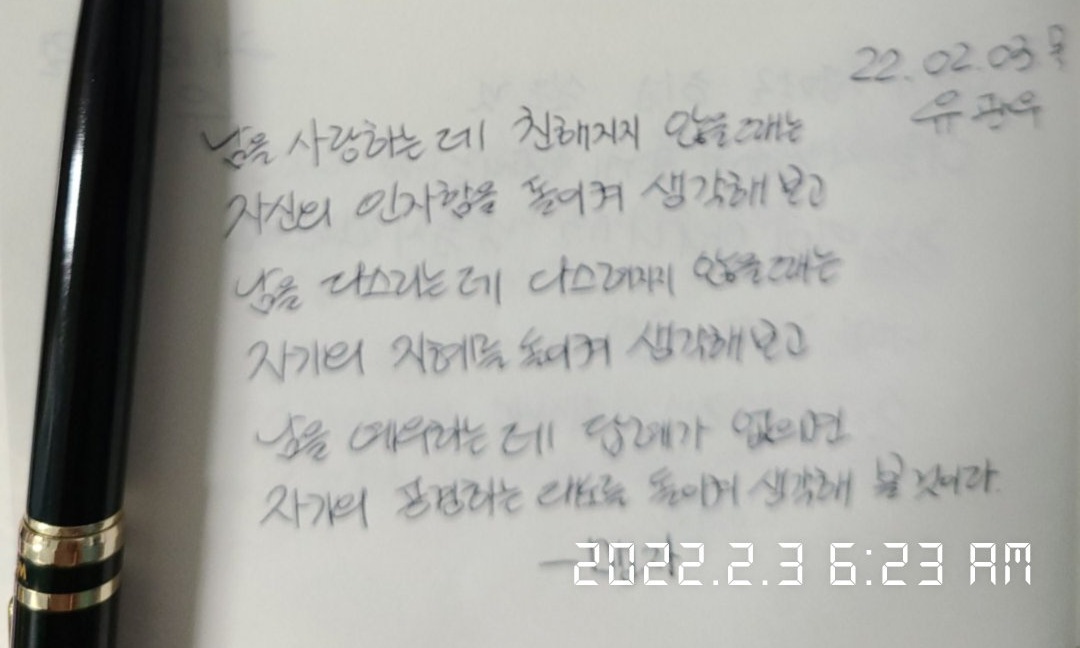 22.02.03 목
유관우
남을 사랑하는데 친해지지 않을때는
자신의 인자함을 돌이켜 생각해 보고
남을 다스리는데 다스려지지 않을때는
자기의 지혜를 돌이켜 생각해보고
남을 예우하는데 답례가 없으면
자기의 공경하는 태도를 돌이켜 생각해 볼 것이다.
2022.2.3 6:23 AM